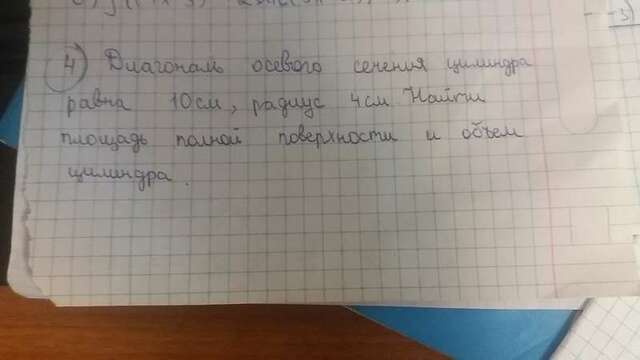 4) Диагональ осевого сечения цилиндра
равна 10см, радиус 4см. Найти
площадь полной поверхности и объем
цилиндра.